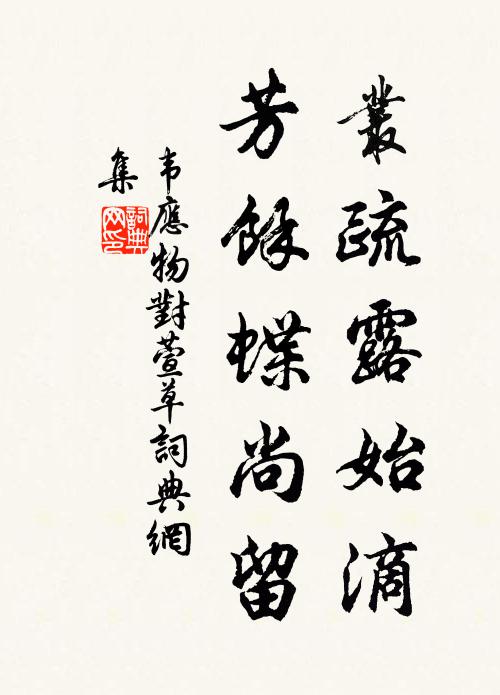 叢疏露始滴
芳餘蝶尚留
韦應物對萱草詞典網
集
詞典
网印